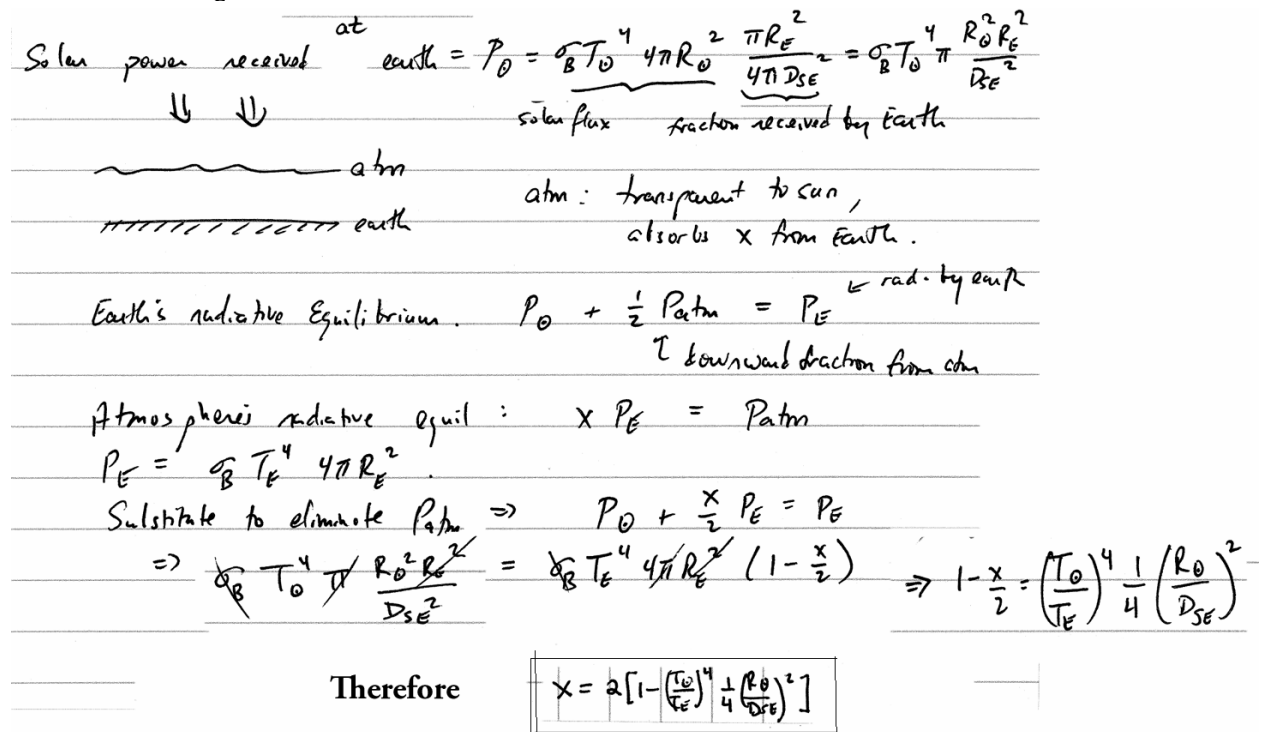 Solar power received at earth = P⊙ = σ_B T⊙⁴ 4πR⊙² πR_E²/(4πD_SE²) = σ_B T⊙⁴ π R⊙²R_E²/D_SE²
⇓ ⇓ solar flux fraction received by Earth
atm
atm : transparent to sun,
earth
absorbs x from Earth.
← rad. by earth
Earth's radiative Equilibrium. P⊙ + ½ Patm = P_E
↑ downward fraction from atm
Atmosphere's radiative equil : x P_E = Patm
P_E = σ_B T_E⁴ 4πR_E² .
Substitute to eliminate Patm ⇒ P⊙ + x/2 P_E = P_E
⇒ σ_B T⊙⁴ π R⊙²R_E²/D_SE² = σ_B T_E⁴ 4πR_E² (1 - x/2) ⇒ 1 - x/2 = (T⊙/T_E)⁴ 1/4 (R⊙/D_SE)²
Therefore x = 2[1-(T⊙/T_E)⁴ 1/4 (R⊙/D_SE)²]